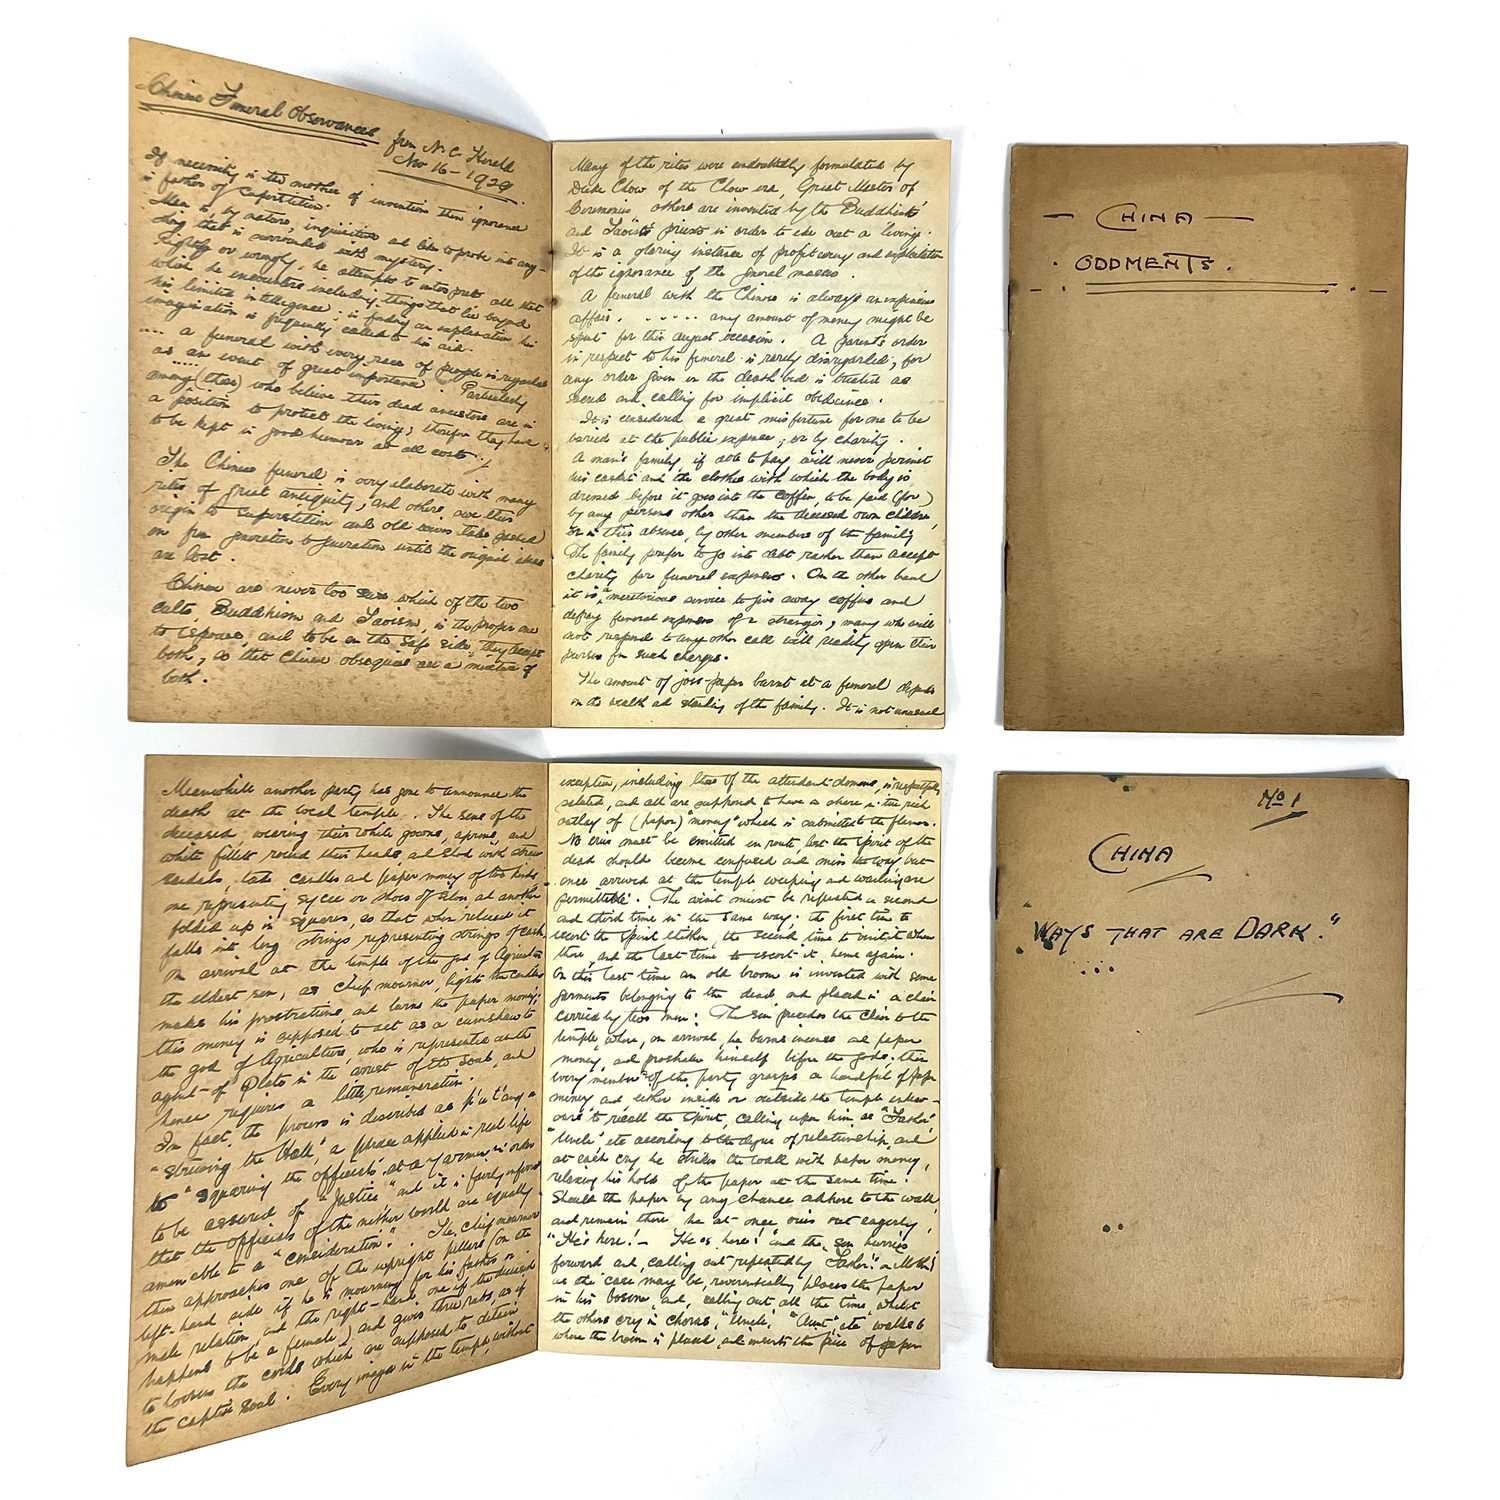 Chinese Funeral Observances from N.C. Herald
Nov 16 - 1929.
If necessity is the mother of invention then ignorance
is father of superstition.
Man is, by nature, inquisitive and likes to probe into any-
thing that is surrounded with mystery.
Rightly or wrongly, he attempts to interpret all that
which he encounters including things that lie beyond
his limited intelligence; in finding an explanation his
imagination is frequently called to his aid.
.... a funeral with every race of people is regarded
as an event of great importance. Particularly
among (those) who believe their dead ancestors are in
a position to protect the living; therefore they have
to be kept in good humour at all costs.
The Chinese funeral is very elaborate with many
rites of great antiquity, and others owe their
origin to superstition and old wives tales passed
on from generation to generation until the original ideas
are lost.
Chinese are never too sure which of the two
cults Buddhism and Taoism, is the proper one
to espouse, and to be on the safe side, they accept
both, so that Chinese obsequies are a mixture of
both.
Many of the rites were undoubtedly formulated by
Duke Chow of the Chow era, Great Master of
Ceremonies others are invented by the Buddhist
and Taoist priests in order to eke out a living.
It is a glaring instance of profiteering and exploitation
of the ignorance of the general masses.
A funeral with the Chinese is always an expensive
affair. ..... any amount of money might be
spent for this august occasion. A parent's order
in respect to his funeral is rarely disregarded, for
any order given on the death bed is treated as
sacred and calling for implicit obedience.
It is considered a great misfortune for one to be
buried at the public expense, or by charity.
A man's family, if able to pay, will never permit
his casket and the clothes with which the body is
dressed before it goes into the coffin, to be paid (for)
by any persons other than the deceased own children,
or in their absence, by other members of the family
The family prefer to go into debt rather than accept
charity for funeral expenses. On the other hand
it is a meretrious service to give away coffins and
defray funeral expenses of a stranger; many who will
not respond to any other call will readily open their
purses for such charges.
The amount of joss-paper burnt at a funeral depends
on the wealth and standing of the family. It is not unusual
- CHINA -
. ODDMENTS.
Meanwhile another party has gone to announce the
death at the local temple. The sons of the
deceased, wearing their white gowns, aprons, and
white fillets round their heads, and shod with straw
sandals, take candles and paper money of two kinds
one representing sycee or shoes of silver and another
folded up in squares, so that when released it
falls into long strings representing strings of cash.
On arrival at the temple of the god of Agriculture
the eldest son, as chief mourner, lights the candles
makes his prostrations and burns the paper money;
this money is supposed to act as a cumshaw to
the god of Agriculture, who is represented as the
agent of Pluto in the arrest of the soul, and
hence requires a little remuneration.
In fact, the process is described as p'u t'ang a
"strewing the Hall", a phrase applied in real life
to "squaring the officials" at a Yamen in order
to be assured of "Justice" and it is fairly inferred
that the officials of the nether world are equally
amenable to a "consideration". The chief mourner
then approaches one of the upright pillars (on the
left-hand side if he is mourning for his father or
male relation and the right-hand one if the deceased
happens to be a female) and gives three rubs, as if
to loosen the cords which are supposed to detain
the captive soul. Every image in the temple, without
exception, including those of the attendant demons, is respectfully
saluted, and all are supposed to have a share in the rich
outlay of (paper) "money" which is submitted to the flames.
No cries must be emitted en route, lest the spirit of the
dead should become confused and miss the way but
once arrived at the temple weeping and wailing are
permitted. The visit must be repeated a second
and third time in the same way; the first time to
escort the spirit thither, the second time to visit it when
there, and the last time to escort it home again.
On this last time an old broom is invested with some
garments belonging to the dead and placed in a chair
carried by two men: The son precedes the chair to the
temple, where, on arrival, he burns incense and paper
money and prostrates himself before the gods. then
every member of the party grasps a handful of paper
money and either inside or outside the temple endeav-
ours to recall the spirit, calling upon him as "Father"
"Uncle" etc according to the degree of relationship, and
at each cry he strikes the wall with paper money,
relaxing his hold of the paper at the same time.
Should the paper by any chance adhere to the wall
and remain there he at once cries out eagerly,
"He's here! - He is here!" and the son hurries
forward and, calling out repeatedly Father! or Mother!
as the case may be, reverentially places the paper
in his bosom, and, calling out all the time, whilst
the others cry in chorus, "Uncle", "Aunt", etc walks to
where the broom is placed, and inserts the piece of paper
No 1
CHINA
WAYS THAT ARE DARK."